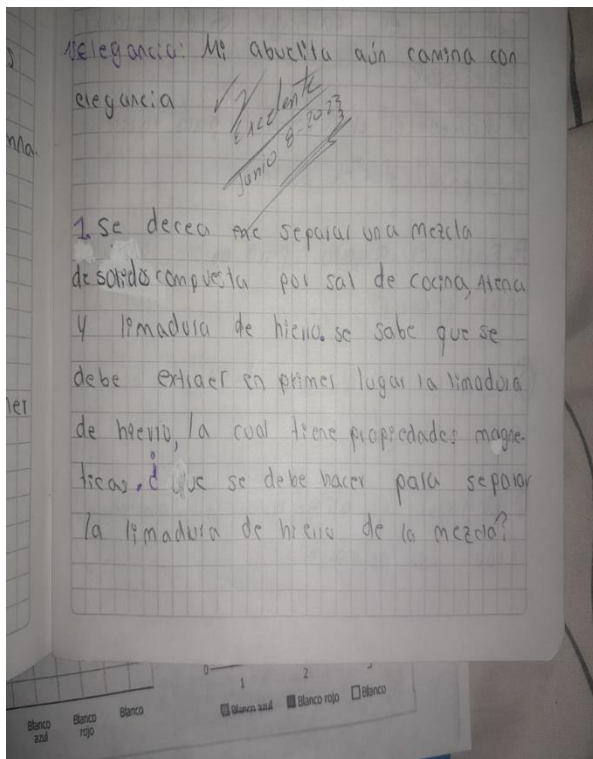 elegancia: Mi abuelita aún camina con
elegancia
Excelente
Junio 8-2023
1. se decea separar una mezcla
de solidos compuesta por sal de cocina, Arena
y limadura de hierro. se sabe que se
debe extraer en primer lugar la limadura
de hierro, la cual tiene propiedades magne-
ticas. ¿ que se debe hacer para separar
la limadura de hierro de la mezcla?
nna.
ler
0
1
2
3
Blanco azul
Blanco rojo
Blanco
Blanco azul Blanco rojo Blanco